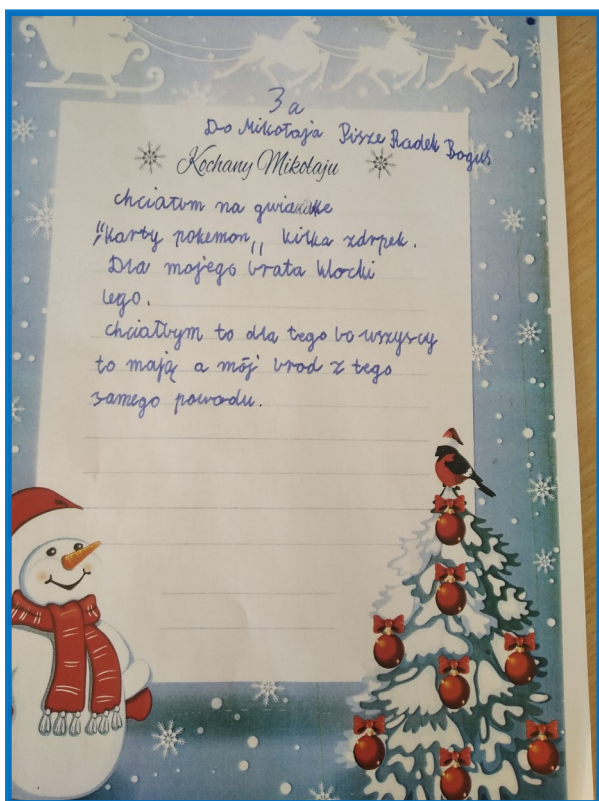 3a
Do Mikołaja Pisze Radek Bogus
Kochany Mikołaju
chciałbm na gwiazdke
"karty pokemon,, kilka zdrpek.
Dla mojego brata klocki
lego.
chciałbym to dla tego bo wszyscy
to mają a mój brad z tego
samego powodu.